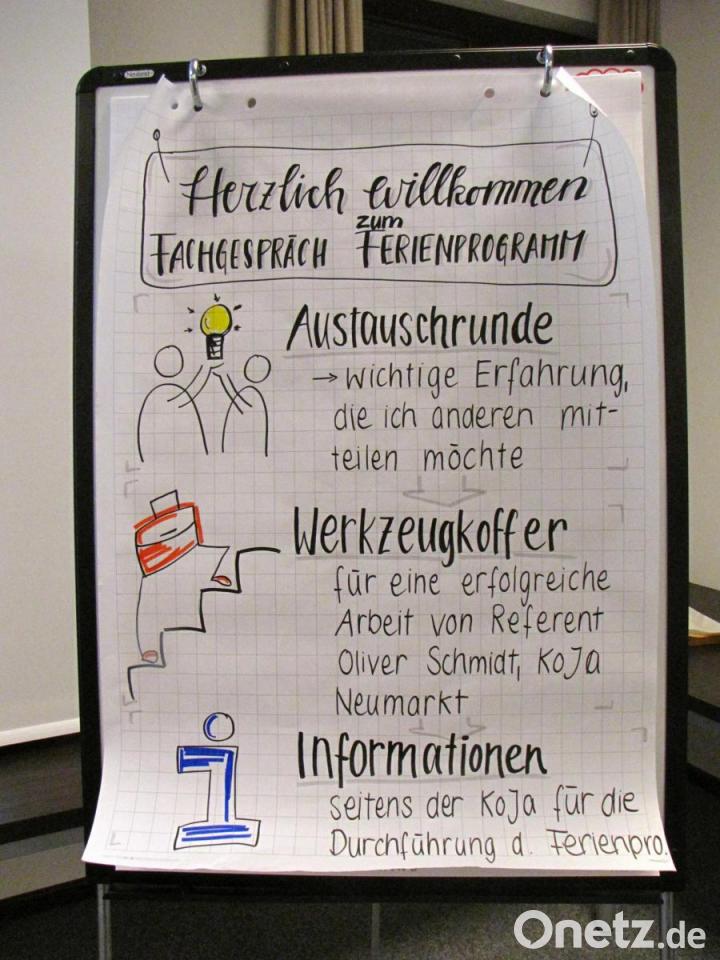 Neuland
Herzlich willkommen
zum
FACHGESPRÄCH FERIENPROGRAMM
AUSTAUSCHRUNDE
→ wichtige Erfahrung,
die ich anderen mit-
teilen möchte
WERKZEUGKOFFER
für eine erfolgreiche
Arbeit von Referent
Oliver Schmidt, KoJa
Neumarkt
INFORMATIONEN
seitens der KoJa für die
Durchführung d. Ferienpro.
Onetz.de